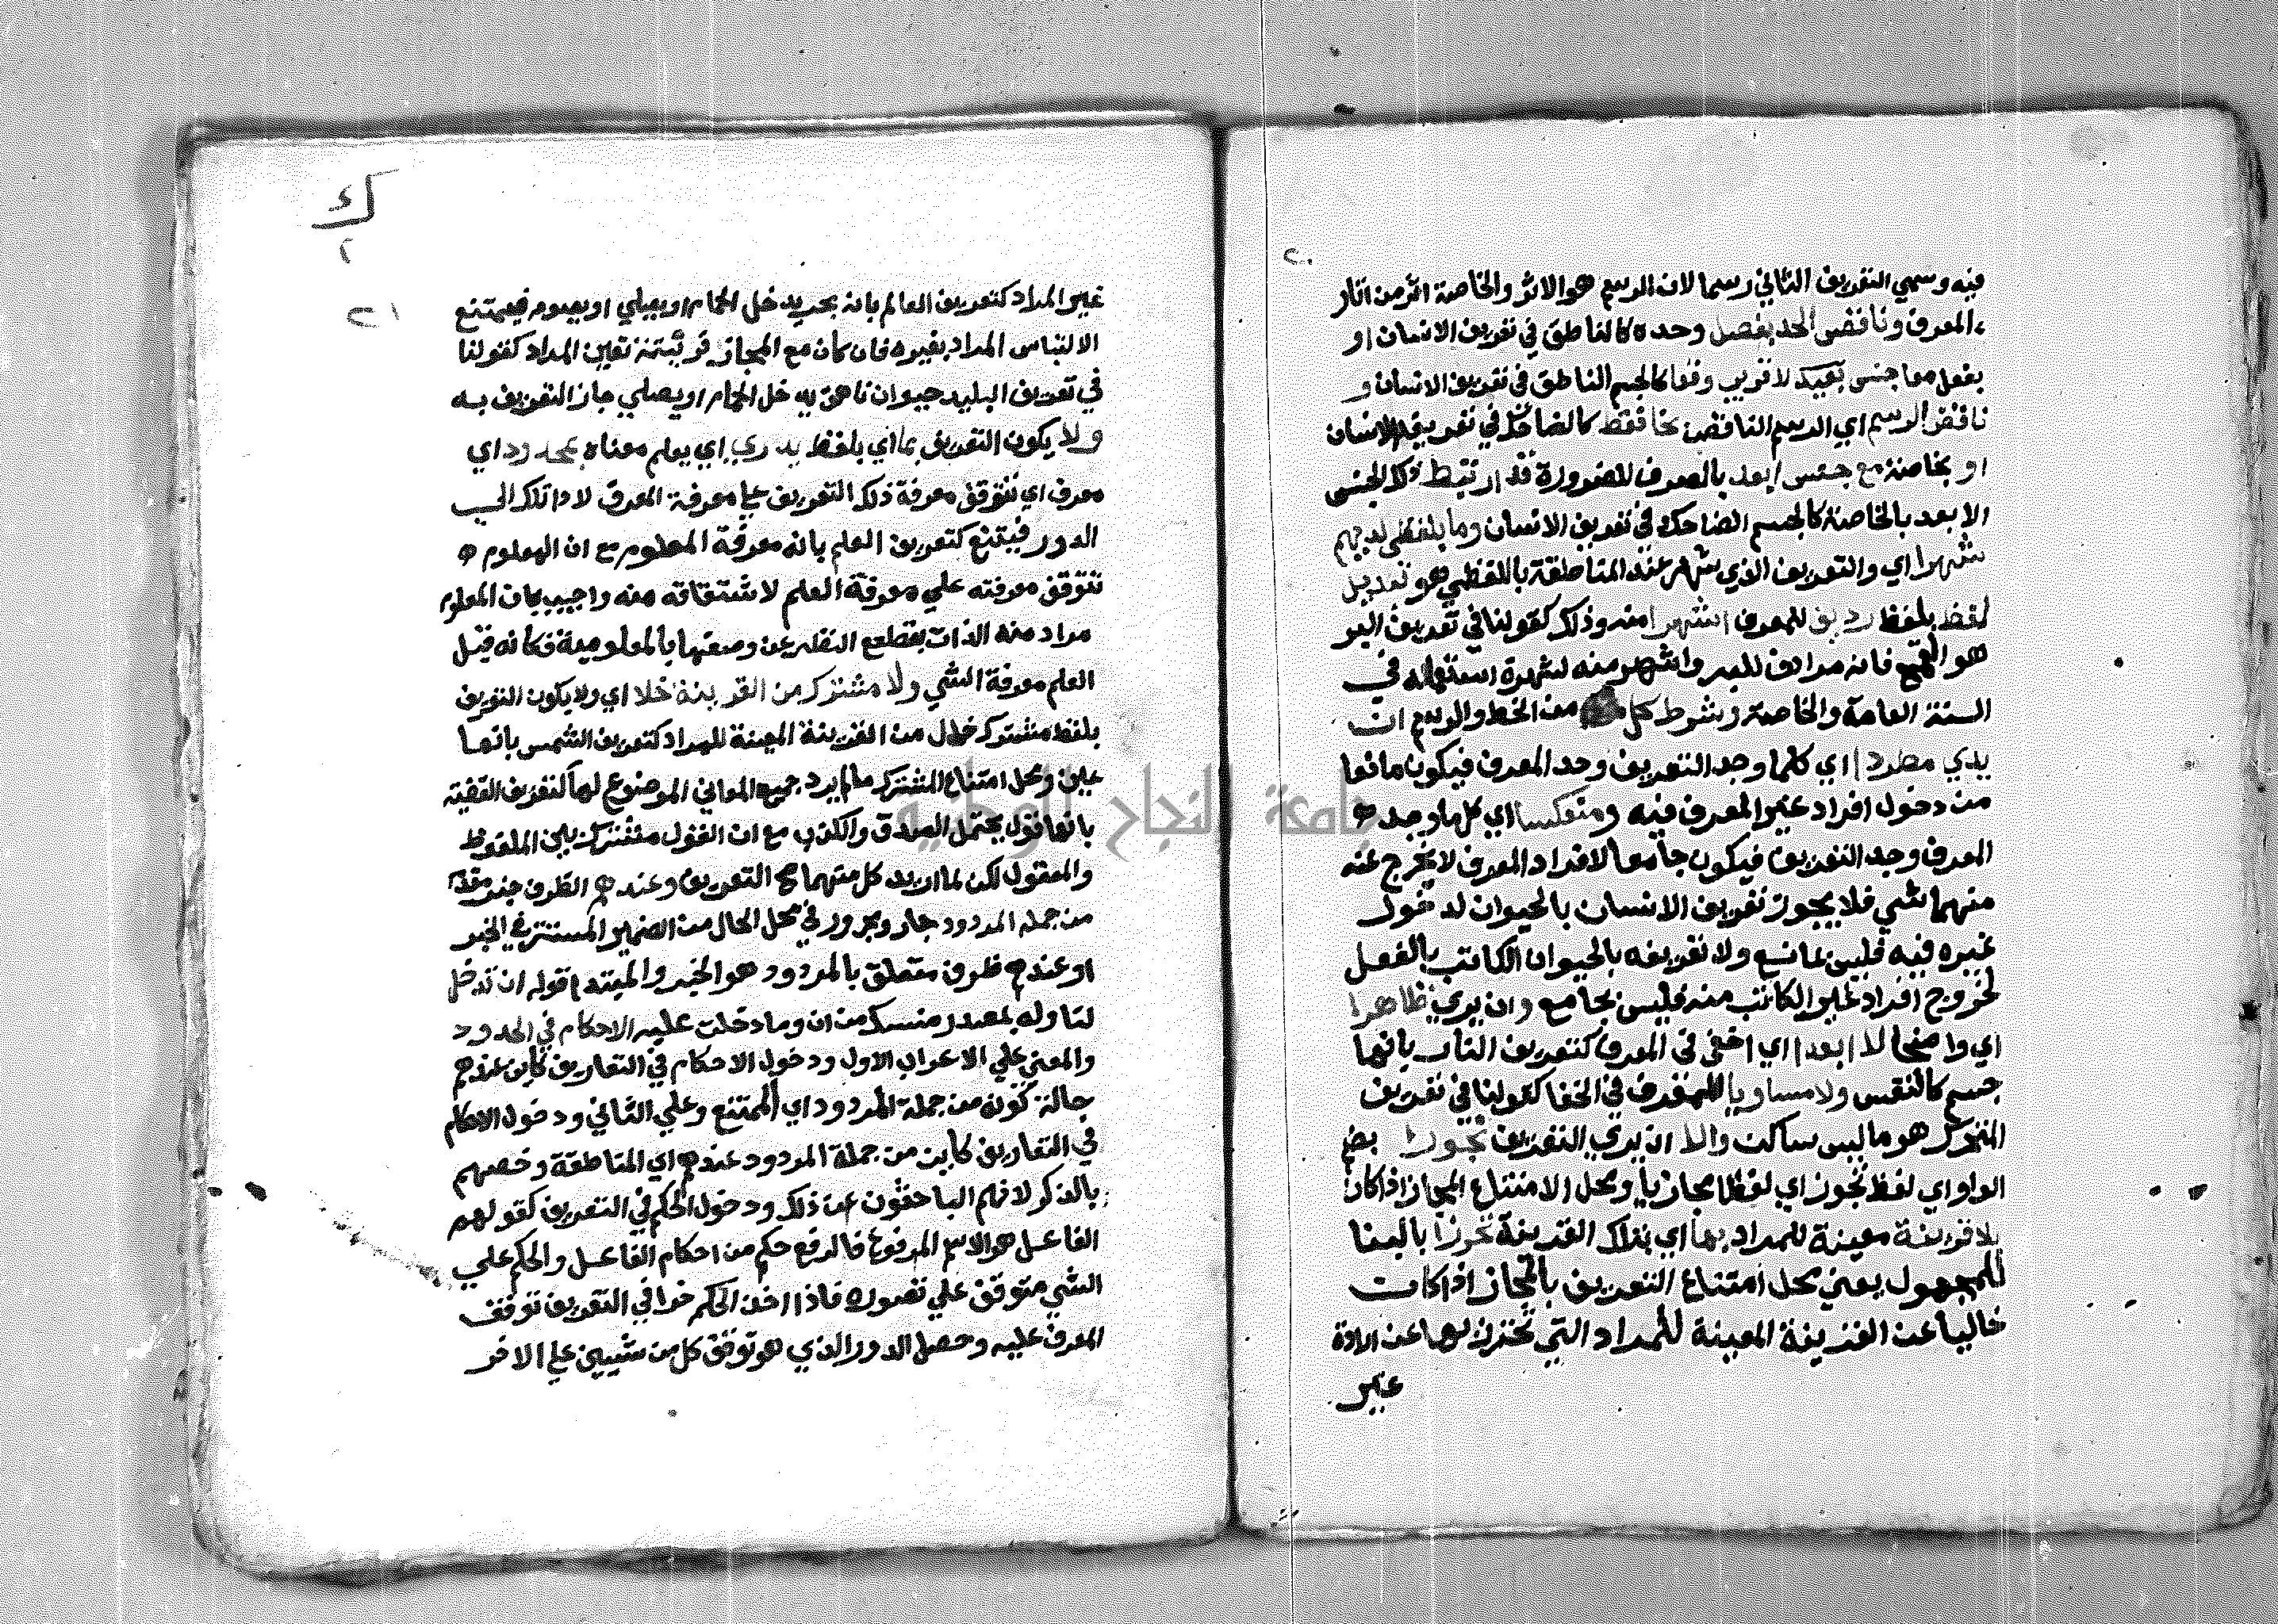 ٢٠
فيه وسمي التعريف الثاني رسما لان الرسم هو الاثر والخاصة اثر من اثار
المعرف وناقض الحد بفصل وحده كالناطق في تعريف الانسان او
بفصل معا جنس بعيد لا قريب وقعا كالجسم الناطق في تعريف الانسان و
ناقض الرسم اي الرسم الناقض بخا فقط كالضاحك في تعريف الانسان
او بخاصة مع جنس ابعد بالصرف للضرورة قد ارتبط ذلك الجنس
الابعد بالخاصة كالجسم الضاحك في تعريف الانسان وما بلفظي لديهم
شهرا اي والتعريف الذي شهر عند المناطقة باللفظي هو تبديل
لفظ بلفظ رديف للمعرف اشهرا منه وذلك كقولنا في تعريف البر
هو القمح فانه مرادف للبر واشهر منه لشهرة استعماله في
السنة العامة والخاصة وشرط كل من الحد والرسم ان
يري مطردا اي كلما وجد التعريف وجد المعرف فيكون مانعا
من دخول افراد غير المعرف فيه ومنعكسا اي كل ما وجد
المعرف وجد التعريف فيكون جامعا لافراد المعرف لا يخرج عنه
منهما شي فلا يجوز تعريف الانسان بالحيوان لدخول
غيره فيه فليس بمانع ولا تعريفه بالحيوان الكاتب بالفعل
لخروج افراد غير الكاتب منه فليس بجامع وان يري ظاهرا
اي واضحا لا ابعدا اي اخفى في المعرف كتعريف النار بانها
جسم كالنفس ولا مساويا للمعرف في الخفا كقولنا في تعريف
المتحرك هو ما ليس ساكن والا ان يري التعريف تجوزا بضم
الواو اي لفظ تجوز اي لفظا مجازيا ومحل الامتناع المجاز اذا كان
بلا قرينة معينة للمراد بها اي بتلك القرينة تحرزا بالبنا
للمجهول يعني محل امتناع التعريف بالمجاز اذا كان
خاليا عن القرينة المعينة للمراد التي تحترز بها عن ارادة
غير
ك
٢١
غير المراد كتعريف العالم بانه بحر يدخل الحمام او يصلي او يصوم فيمتنع
الالتباس المراد بغيره فان كان مع المجاز قرينة تعين المراد كقولنا
في تعريف البليد حيوان ناهق يدخل الحمام او يصلي جاز التعريف به
ولا يكون التعريف بما اي بلفظ يدري اي يعلم معناه بمحدود اي
معرف اي تتوقف معرفة ذلك التعريف علي معرفة المعرف لاداتلك الي
الدور فيمتنع كتعريف العلم بانه معرفة المعلوم مع ان المعلوم
تتوقف معرفته علي معرفة العلم لاشتقاقه منه واجيب بان المعلوم
مراد منه الذات بقطع النظر عن وصفها بالمعلومية فكانه قيل
العلم معرفة الشي ولا مشترك من القرينة خلا اي ولا يكون التعريف
بلفظ مشترك خال من القرينة المعينة للمراد كتعريف الشمس بانها
عين ومحل امتناع المشترك ما لم يرد جميع المعاني الموضوع لها كتعريف القضية
بانها قول يحتمل الصدق والكذب مع ان القول مشترك بين الملفوظ
والمعقول لكن لما اريد كل منهما صح التعريف وعندهم الظرف خبر مقدم
من جملة المردود جار ومجرور في محل الحال من الضمير المستتر في الخبر
او عندهم ظرف متعلق بالمردود هو الخبر والمبتدا قوله ان تدخل
لتاوله بمصدر منسبك من ان وما دخلت عليه الاحكام في الحدود
والمعني علي الاعراب الاول ودخول الاحكام في التعاريف كاين عندهم
حالة كونه من جملة المردود اي الممتنع وعلي الثاني ودخول الاحكام
في التعاريف كاين من جملة المردود عندهم اي المناطقة وخصهم
بالذكر لانهم الباحثون عن ذلك ودخول الحكم في التعريف كقولهم
الفاعل هو الاسم المرفوع فالرفع حكم من احكام الفاعل والحكم علي
الشي متوقف علي تصوره فاذا اخذ الحكم جزا في التعريف توقف
المعرف عليه وحصل الدور الذي هو توقف كل من شيين علي الاخر
جامعة النجاح الوطنية